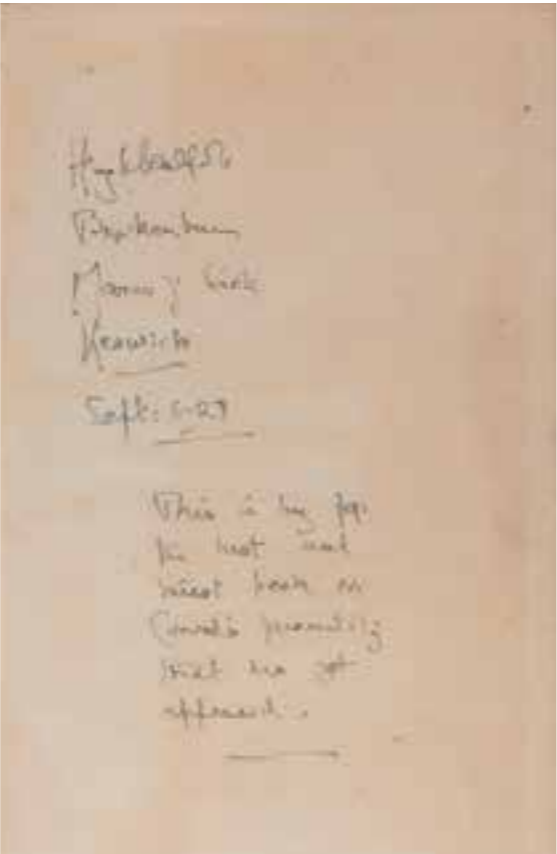 Hugh Walpole
Brackenburn
Manesty Park
Keswick
Sept: 1927
This is by far
the best and
book on
Conrad's personality
that has yet
appeared.